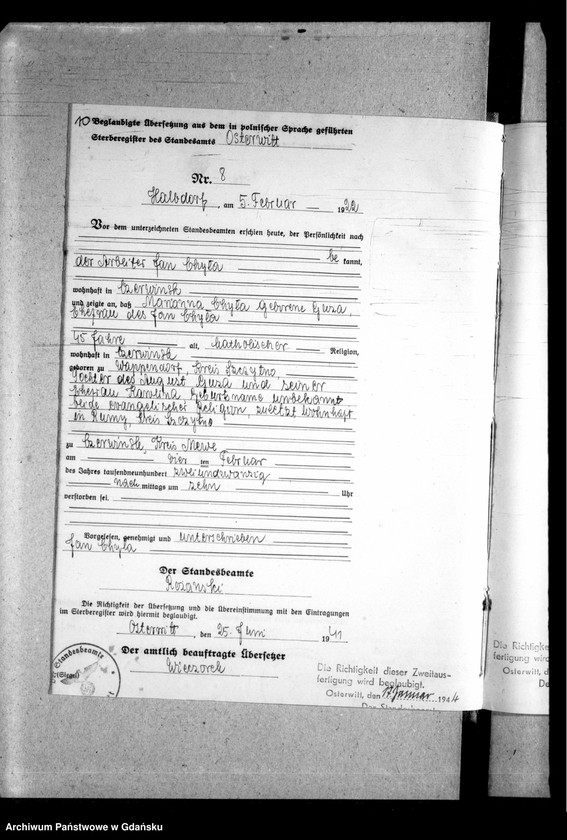 10 Beglaubigte Übersetzung aus dem in polnischer Sprache geführten
Sterberegister des Standesamts Osterwitt
Nr. 8
Halbdorf, am 5. Februar 1922
Vor dem unterzeichneten Standesbeamten erschien heute, der Persönlichkeit nach
be kannt,
der Arbeiter Jan Chyła
wohnhaft in Czerwinsk
und zeigte an, daß Marianna Chyła geborene Guza,
Ehefrau des Jan Chyła
45 Jahre alt, katholischer Religion,
wohnhaft in Czerwinsk
geboren zu Wappendorf, Kreis Szczytno
Tochter des August Guza und seiner
Ehefrau Karolina, Geburtsname unbekannt
beide evangelischer Religion, zuletzt wohnhaft
in Rumy, Kreis Szczytno
zu Czerwinsk, Kreis Mewe
am vier ten Februar
des Jahres tausendneunhundert zweiundzwanzig
nach mittags um zehn Uhr
verstorben sei.
Vorgelesen, genehmigt und unterschrieben
Jan Chyła
Der Standesbeamte
Rozanski
Die Richtigkeit der Übersetzung und die Übereinstimmung mit den Eintragungen
im Sterberegister wird hiermit beglaubigt.
Osterwitt, den 25. Juni 1941
Der amtlich beauftragte Übersetzer
Wieczorek
Standesbeamte
(Siegel)
Die Richtigkeit dieser Zweitaus-
fertigung wird beglaubigt.
Osterwitt, den 17. Januar 1944
Der Standesbeamte
Die Richtigke
fertigung wird
Osterwitt, d
De
Archiwum Państwowe w Gdańsku